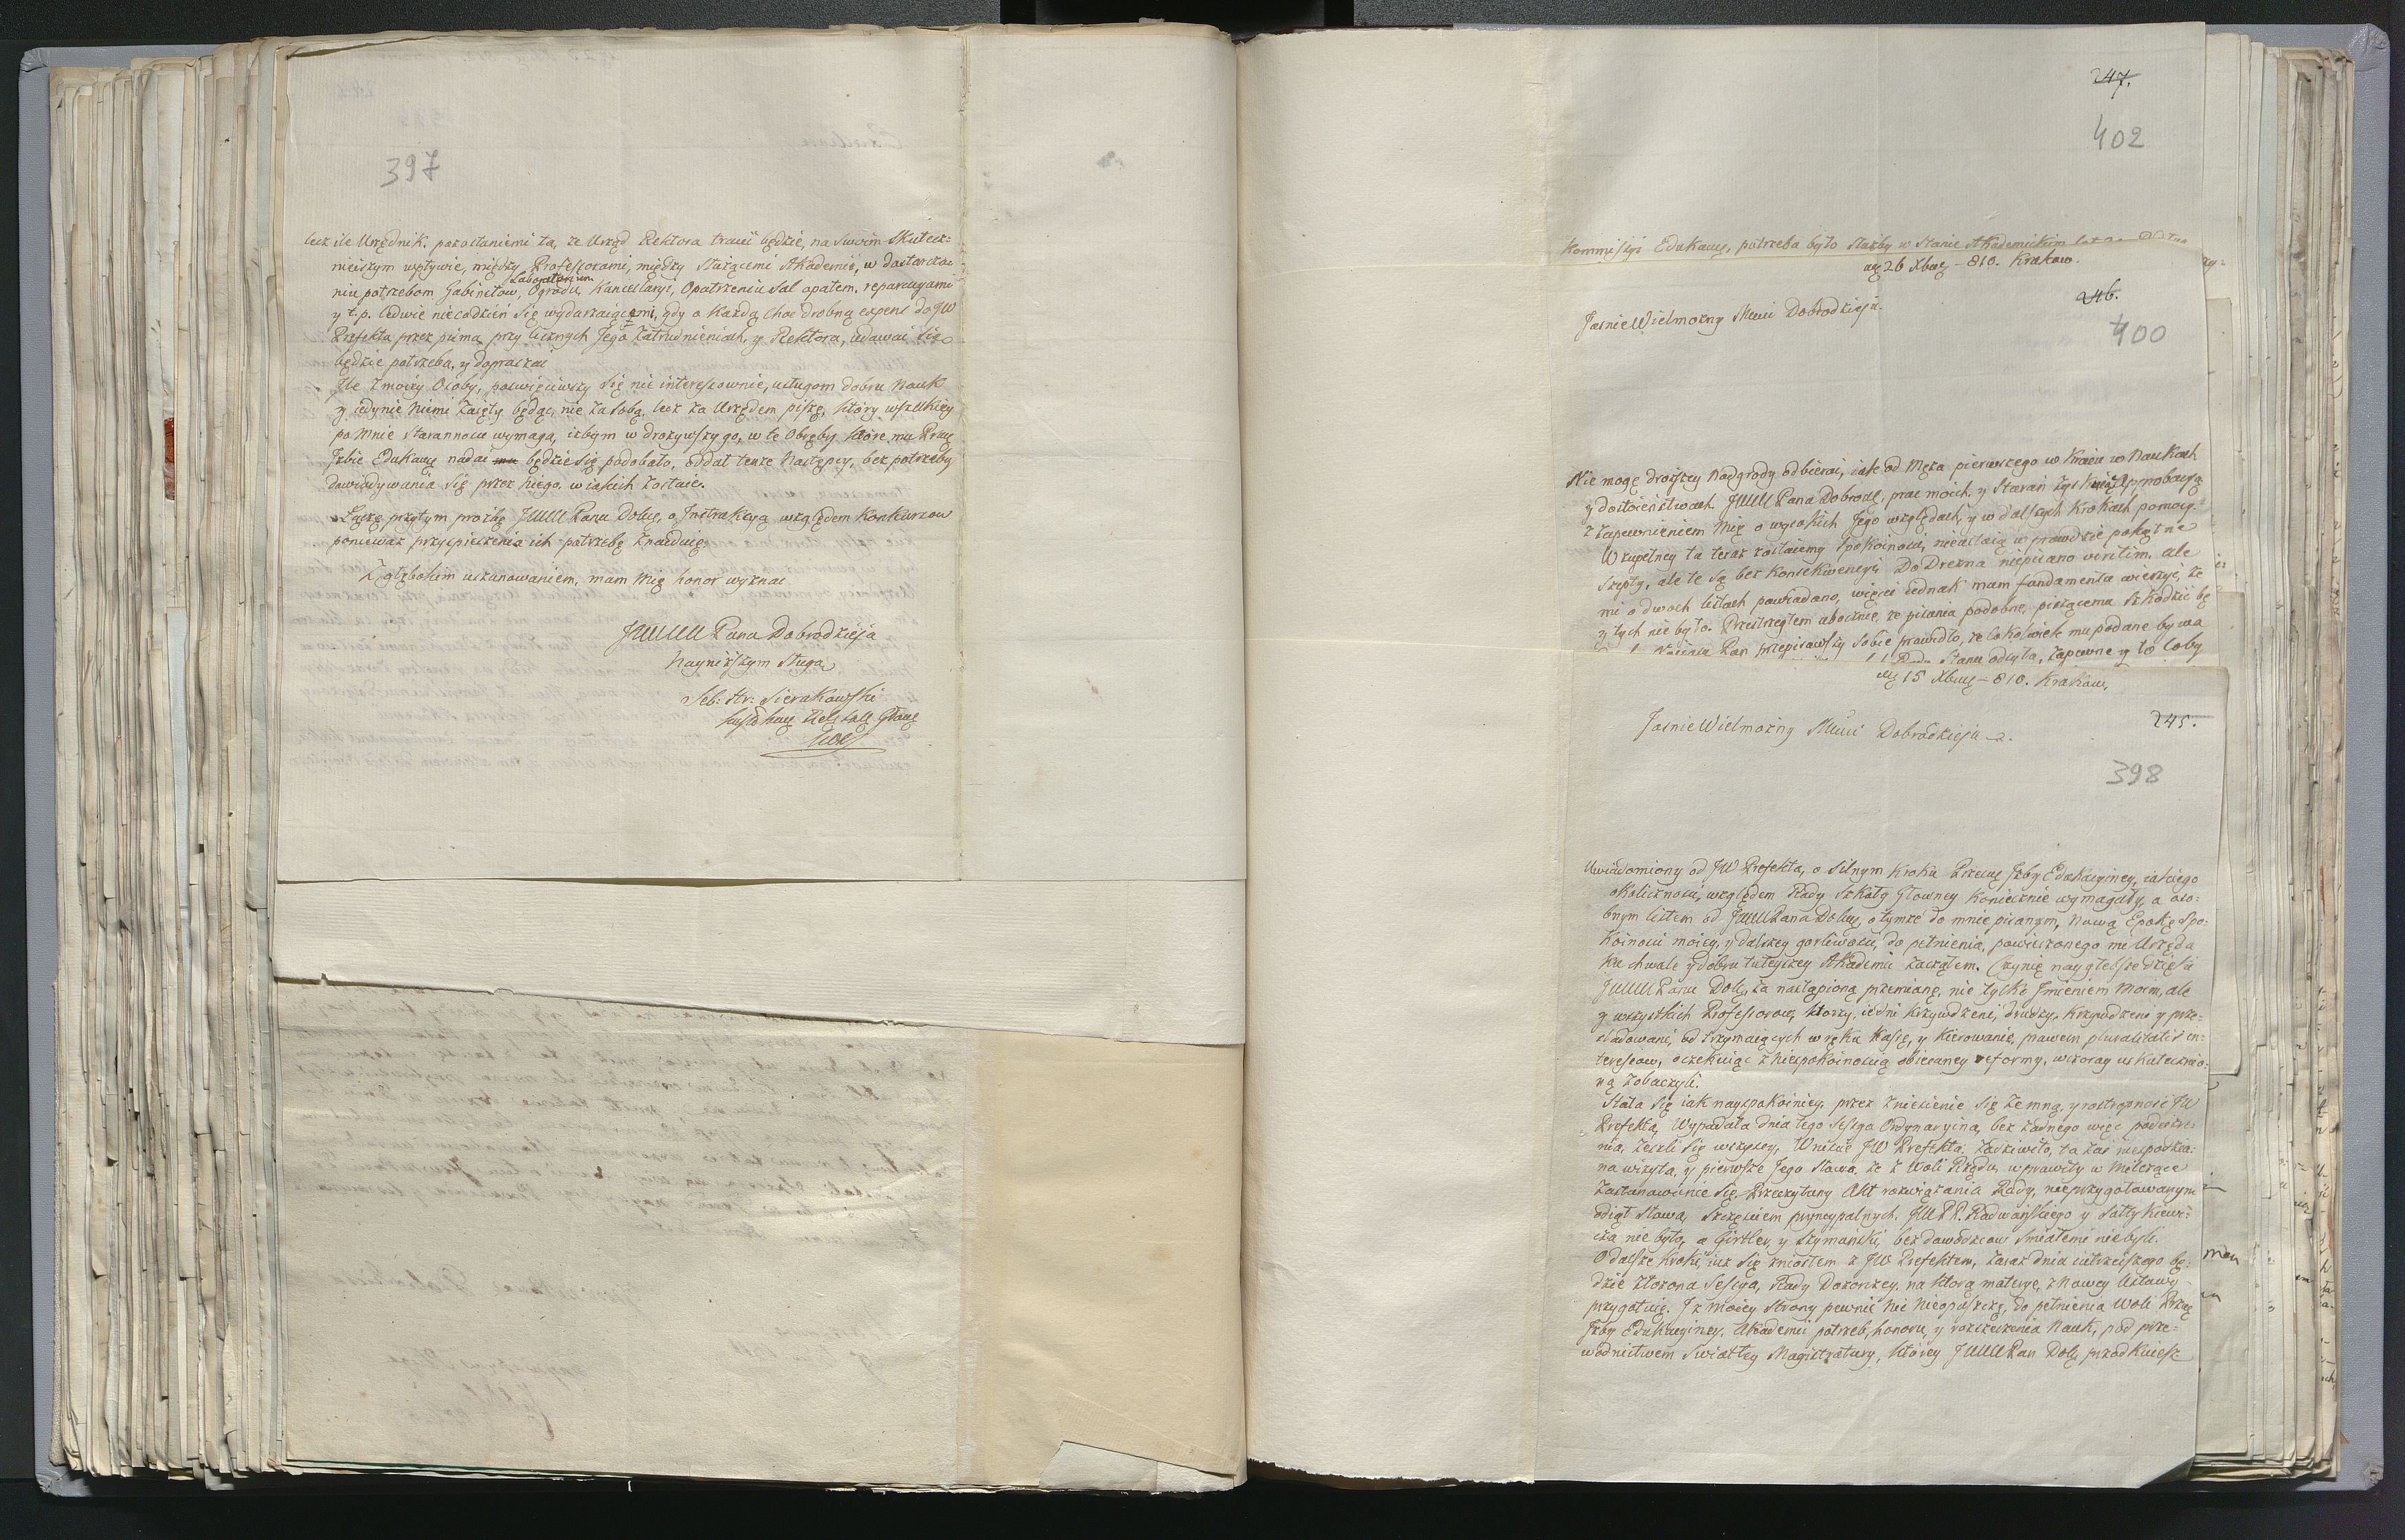 397
lecz ile Urzędnik. pozostaniemi ta, że Urząd Rektora tracić będzie, na swoim Skutecz:
nieyszym wpływie, między Professorami, między służącemi Akademii, w dostarcza:
niu potrzebom Gabinetow, Laboratorium Ogrodu, Kancellaryi, Opatrzeniu Sal opałem, reparacyami
y t.p. ledwie niecodzień się wydarzaiącemi, gdy o każdą choć drobną expens do JW
Prefekta przez pisma, przy licznych Jego Zatrudnieniach, y Rektora, udawać się
będzie potrzeba, y dopraszać
Ile z moiey Osoby, poswięciwszy się nie interessownie, usługom dobru Nauk
y iedynie Niemi zaięty będąc, nie za sobą, lecz za Urzędem piszę, który wszelkiey
po Mnie staranności wymaga, iżbym wdrożywszy go, w te Obręby które mu Przes:
Izbie Edukacyi nadać mu będzie się podobało, oddał tenże Następcy, bez potrzeby
dowiadywania się przez niego, w iakich zostaie.
Łączę przytym prozbę JWW Pana Dobrą, o Instrukcyą względem Konkursow
ponieważ przyspieszenia ich potrzebę znayduię.
Z głębokim uszanowaniem, mam Mię honor wyznać
JWWW Pana Dobrodzieja
Nayniższym sługą
Seb: Hr: Sierakowski
247.
402
Kommissyi Edukacyi, potrzeba było służby w Stanie Akademickim lat
26 Xbra – 810. Krakow.
246.
Jasnie Wielmożny Mści Dobrodzieju.
400
Nie mogę droższey Nadgrody odbierać, iak od Męża pierwszego w Kraiu w Naukach
y dostoieństwach. JWW Pana Dobrodz, prac moich, y Starań
z zapewnieniem Mię o wysokich Jego względach, y w dalszych krokach pomocy.
W zupełney tu teraz zostaiemy Spokoiności, nieustaią w prawdzie pokątne
Szepty, ale te są bez Konsekwencyi. Do Drezna niepisano viritim. ale
mi o dwoch listach powiadano, więcey iednak mam fundamenta wierzyć, że
y tych nie było. Przestrzegłem ubocznie, że pisania podobne, piszącemu szkodzić bę
Pan przepisawszy sobie prawidło, że cokolwiek mu podane bywa
Stanu odsyła, zapewne y to coby
15 Xbra – 810. Krakow,
245.
Jasnie Wielmożny Mści Dobrodzieju.
398
Uwiadomiony od JW Prefekta, o silnym kroku Przesw Izby Edukacyiney, iakiego
okoliczności, względem Rady Szkoły Głowney koniecznie wymagały, a oso:
bnym listem od JWW Pana Dobrą, o tymże do mnie pisanym, Nową Epokę Spo:
koiności moiey, y dalszey gorliwości, do pełnienia, powierzonego mi Urzędu
ku chwale y dobru tuteyszey Akademii zacząłem. Czynię naygłębsze dzięki
JWWW Panu Dobr, za nastąpioną przemianę, nie tylko Imieniem Moim, ale
y wszystkich Professorow, ktorzy, iedni krzywdzeni, drudzy, krzywdzeni y prze:
sladowani, od trzymaiących w ręku Kassę, y Kierowanie, prawem pluralitatis in:
teressow, oczekuiąc z niespokoinością obiecaney reformy, wczoray uskuteczno:
ną zobaczyli.
Stała się iak nayspokoiniey, przez zniesienie się ze mną, y roztropność JW
Prefekta, Wypadała dnia tego Sessya Ordynaryina, bez żadnego więc podeyrze:
nia, zeszli się wszyscy, Wniście JW Prefekta, zadziwiło, ta zaś niespodzia:
na wizyta, y pierwsze Jego słowa, że z Woli Rządu, wprawiły w milczące
zastanowienie się. Przeczytany Akt rozwiązania Rady, nieprzygotowanym
odiął słowa, szczęściem pryncypalnych, JWPP. Radwańskiego y Sołtykiewi:
cza nie było, a Girtler, y Szymański, bez dowodzcow śmiałemi niebyli.
O dalsze kroki, iuż się zniosłem z JW Prefektem, zaraz dnia iutrzeyszego bę:
dzie złożona Sessya, Rady Dozorczey, na ktorą materye, z Nowey Ustawy
przygotuię. I z moiey strony pewnie Nic Nieopuszczę, do pełnienia Woli Przes
Izby Edukacyiney, Akademii potrzeb, honoru, y rozszerzenia Nauk, pod prze:
wodnictwem Swiatłey Magistratury, ktorey JWWW Pan Dobr przodkuiesz